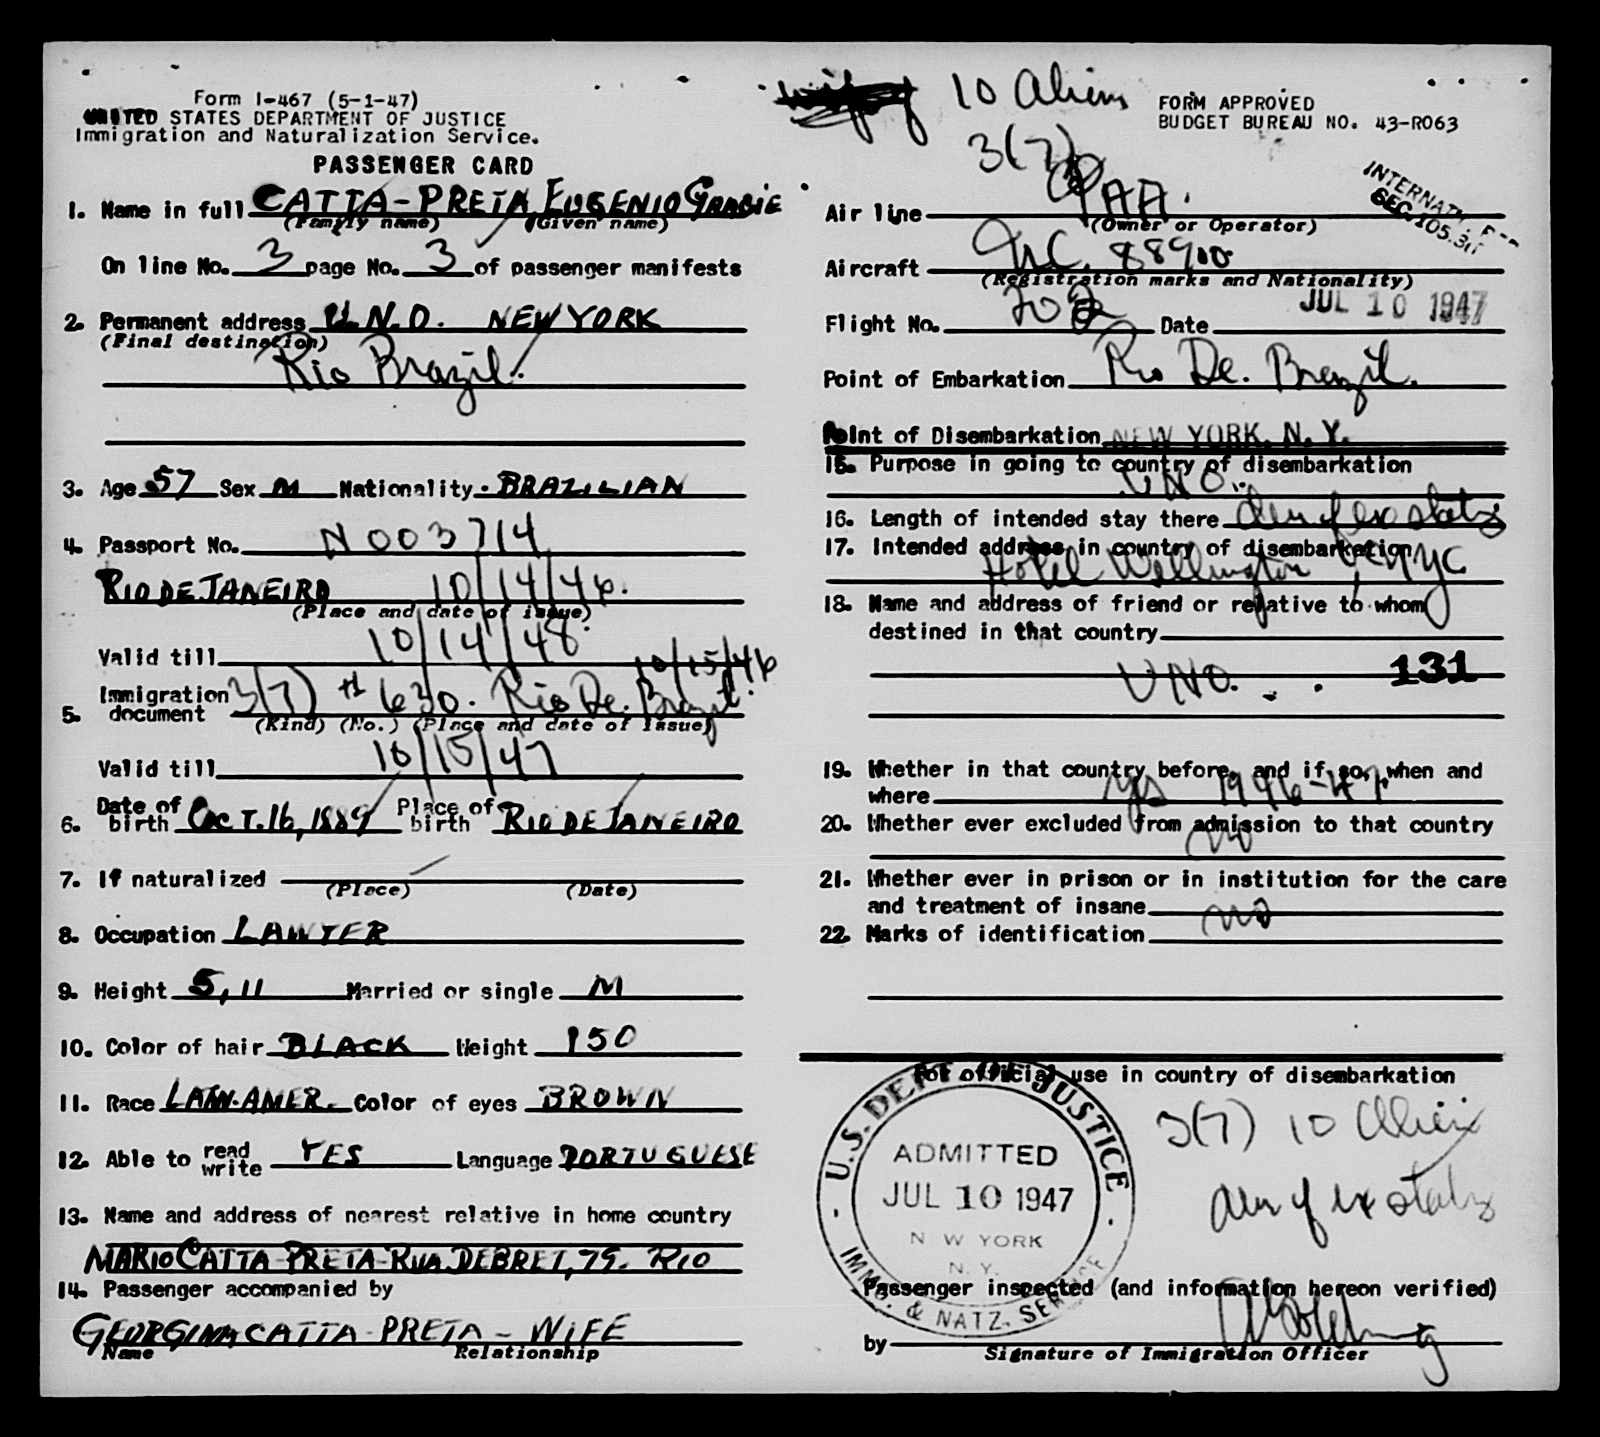 Form I-467 (5-1-47)
UNITED STATES DEPARTMENT OF JUSTICE
Immigration and Naturalization Service.
PASSENGER CARD
1. Name in full CATTA-PRETA EUGENIO GRACIE
(Family name) (Given name)
On line No. 3 page No. 3 of passenger manifests
2. Permanent address U.N.O. NEW YORK
(Final destination)
Rio Brazil.
3. Age 57 Sex M Nationality. BRAZILIAN
4. Passport No. N 003714
RIO DE JANEIRO 10/14/46.
(Place and date of issue)
Valid till 10/14/48.
10/15/46
5. Immigration document 3(7) #630. Rio De. Brazil.
(Kind) (No.) (Place and date of issue)
Valid till 10/15/47
6. Date of birth OCT.16,1889 Place of birth RIO DE JANEIRO
7. If naturalized
(Place) (Date)
8. Occupation LAWYER
9. Height 5,11 Married or single M
10. Color of hair BLACK Weight 150
11. Race LATIN-AMER. Color of eyes BROWN
12. Able to read write YES Language PORTUGUESE
13. Name and address of nearest relative in home country
MARIO CATTA-PRETA-RUA.DEBRET,79. RIO
14. Passenger accompanied by
GEORGINA CATTA-PRETA - WIFE
Name Relationship
10 Aliens
3(7)
FORM APPROVED
BUDGET BUREAU NO. 43-R063
INTERNAT
SEC. 105.3
Air line PAA.
(Owner or Operator)
Aircraft NC. 88900
(Registration marks and Nationality)
Flight No. 202 Date JUL 10 1947
Point of Embarkation Rio De. Brazil.
Point of Disembarkation NEW YORK, N. Y.
15. Purpose in going to country of disembarkation
UNO.
16. Length of intended stay there dur of ex status
17. Intended address in country of disembarkation
Hotel Wellington, NYC
18. Name and address of friend or relative to whom
destined in that country
UNO. 131
19. Whether in that country before, and if so, when and
where yes 1946-47
20. Whether ever excluded from admission to that country
no
21. Whether ever in prison or in institution for the care
and treatment of insane no
22. Marks of identification
For official use in country of disembarkation
U.S. DEPT. OF JUSTICE
ADMITTED
JUL 10 1947
N W YORK
N. Y.
IMMG. & NATZ. SERVICE
3(7) 10 Alien
dur of ex status
Passenger inspected (and information hereon verified)
by
Signature of Immigration Officer